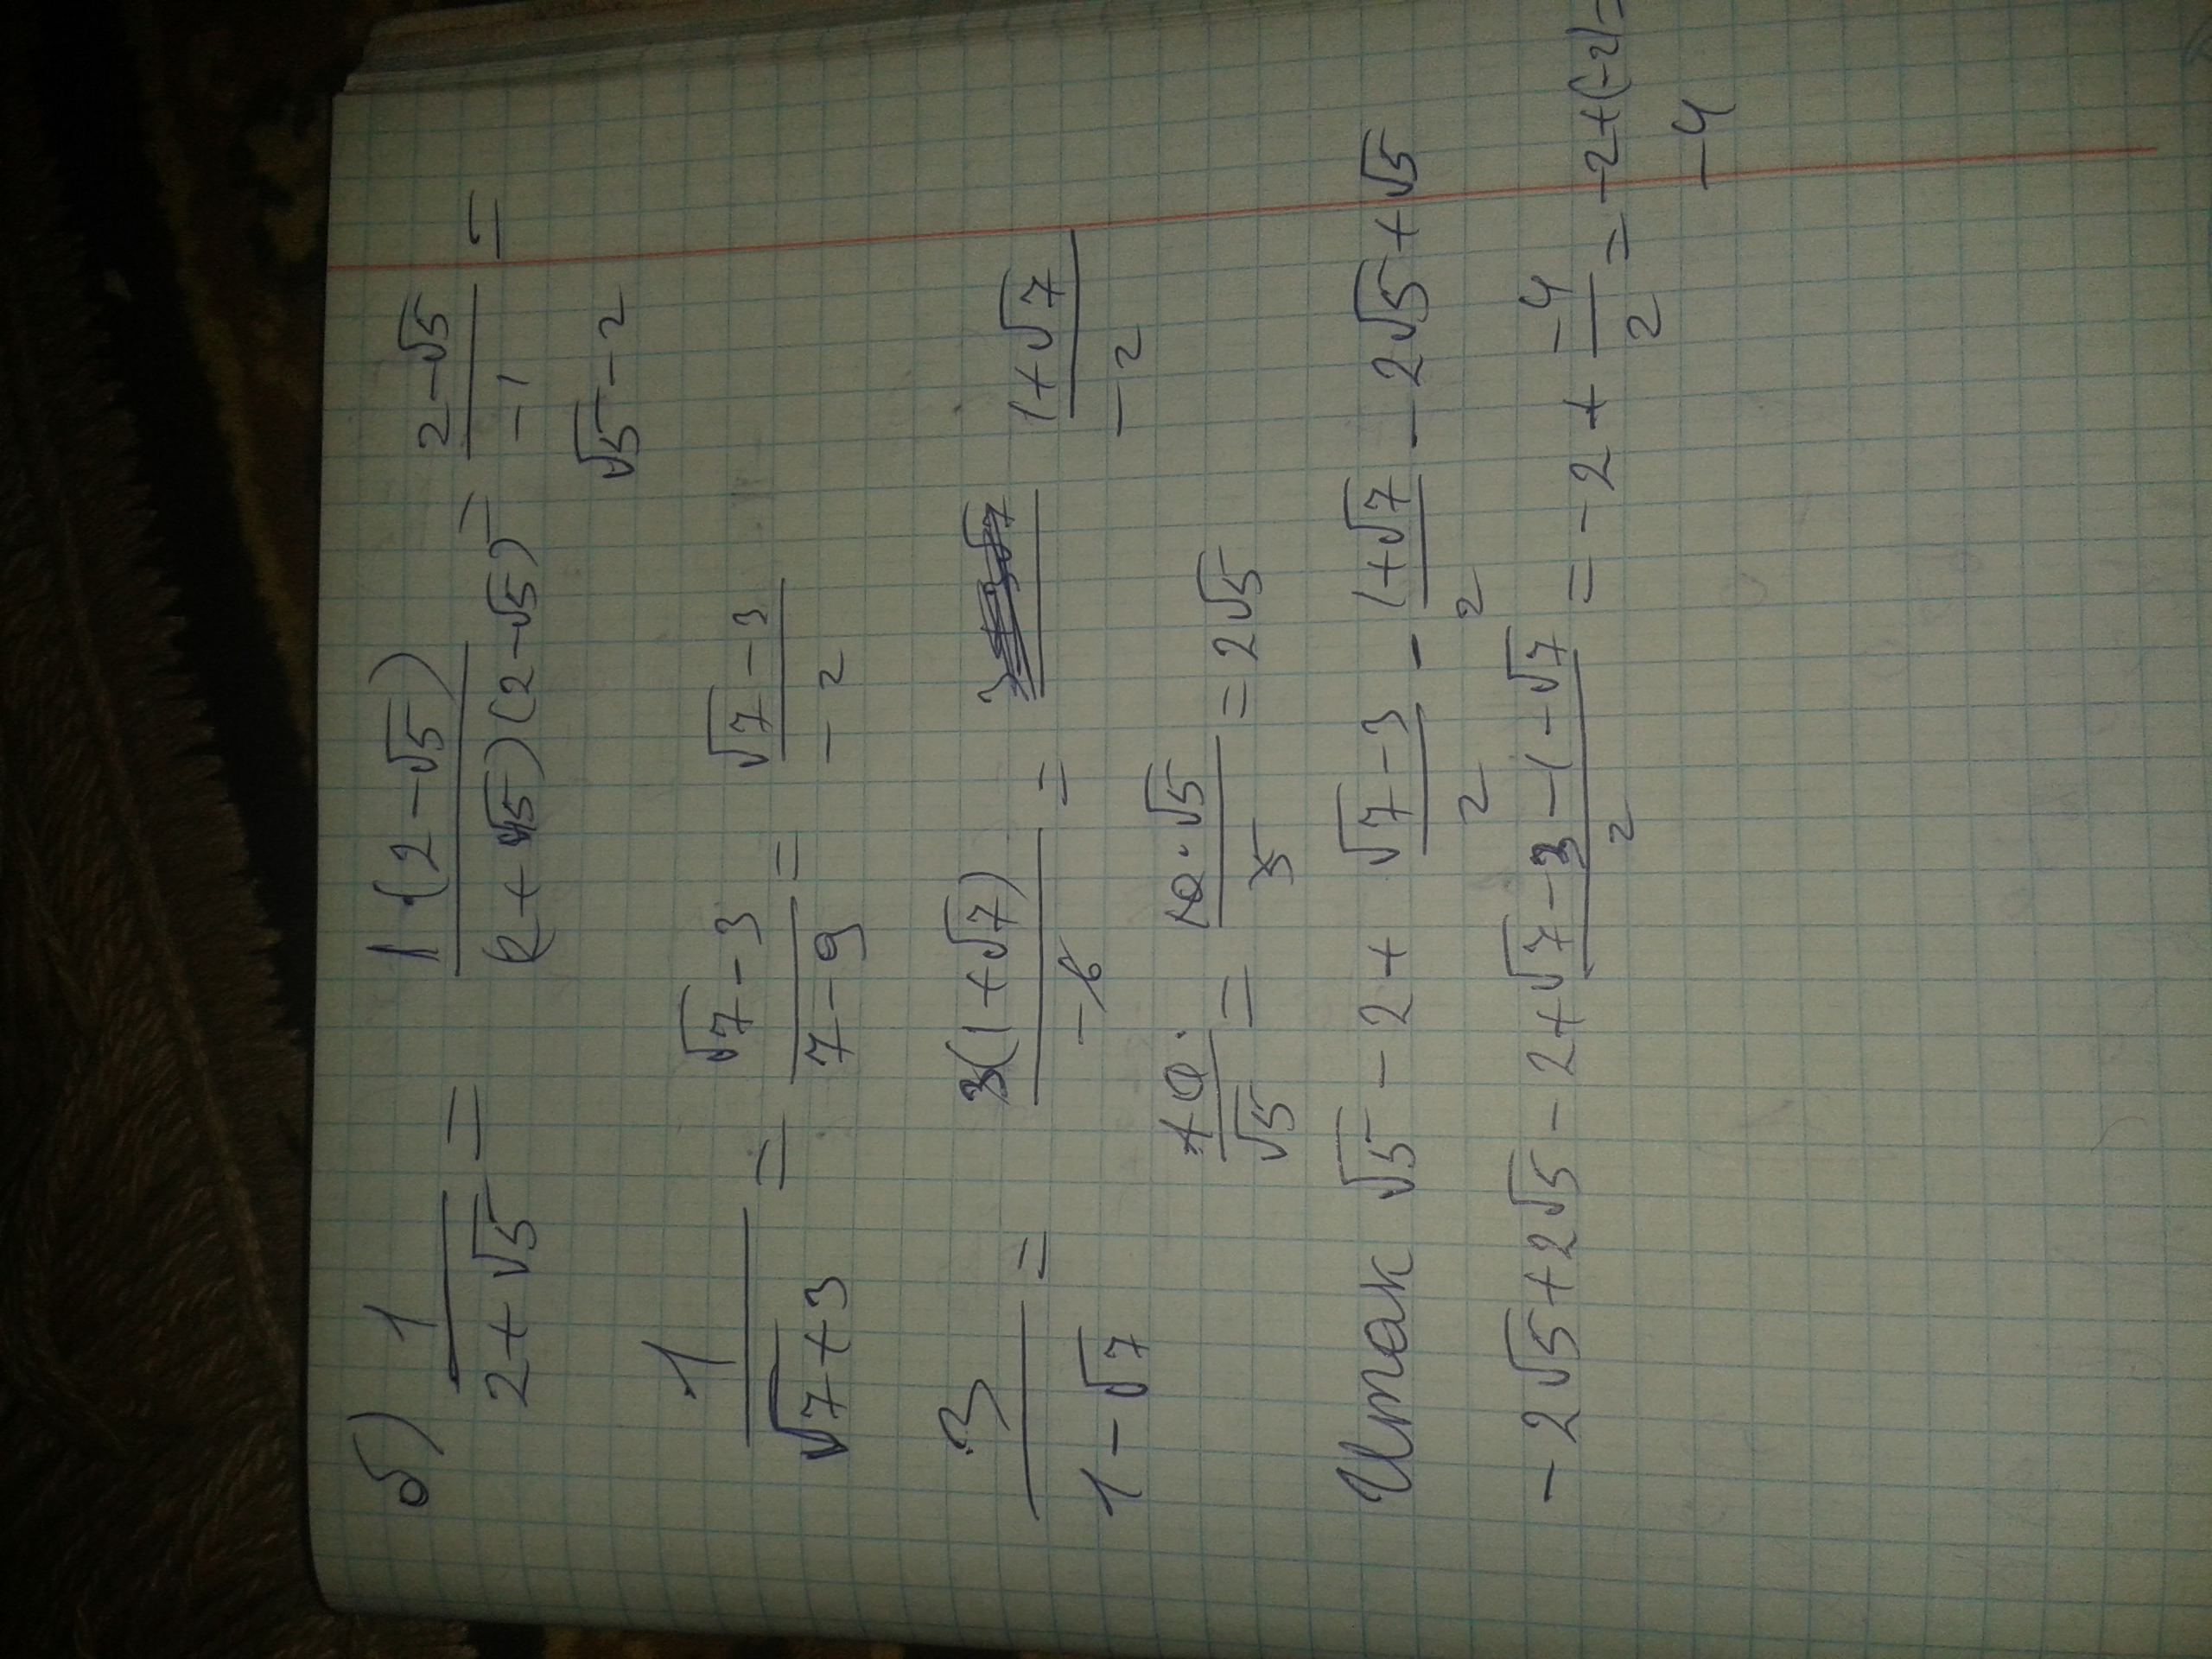 б) 1/(2+√5) = 1·(2-√5)/((2+√5)(2-√5)) = (2-√5)/(-1) =
√5-2
1/(√7+3) = (√7-3)/(7-9) = (√7-3)/(-2)
3/(1-√7) = 3(1+√7)/(-6) = (1+√7)/(-2)
10/√5 = 10·√5/5 = 2√5
Итак √5-2+ (√7-3)/2 - (1+√7)/2 - 2√5+√5
-2√5+2√5-2+ (√7-3-1-√7)/2 = -2+ (-4)/2 = -2+(-2)=
-4